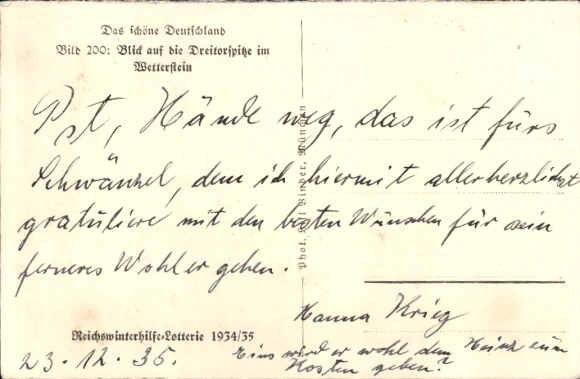 Das schöne Deutschland
Bild 200: Blick auf die Dreitorspitze im
Wetterstein
Pst, Hände weg, das ist fürs
Schwänzel, dem ich hiermit allerherzlichst
gratuliere mit den besten Wünschen für sein
ferneres Wohlergehen.
Hanna Krieg
Phot. Binder, München
Reichswinterhilfe-Lotterie 1934/35
23.12.35.
Eins wird er wohl dem Heinz zum
Kosten geben?